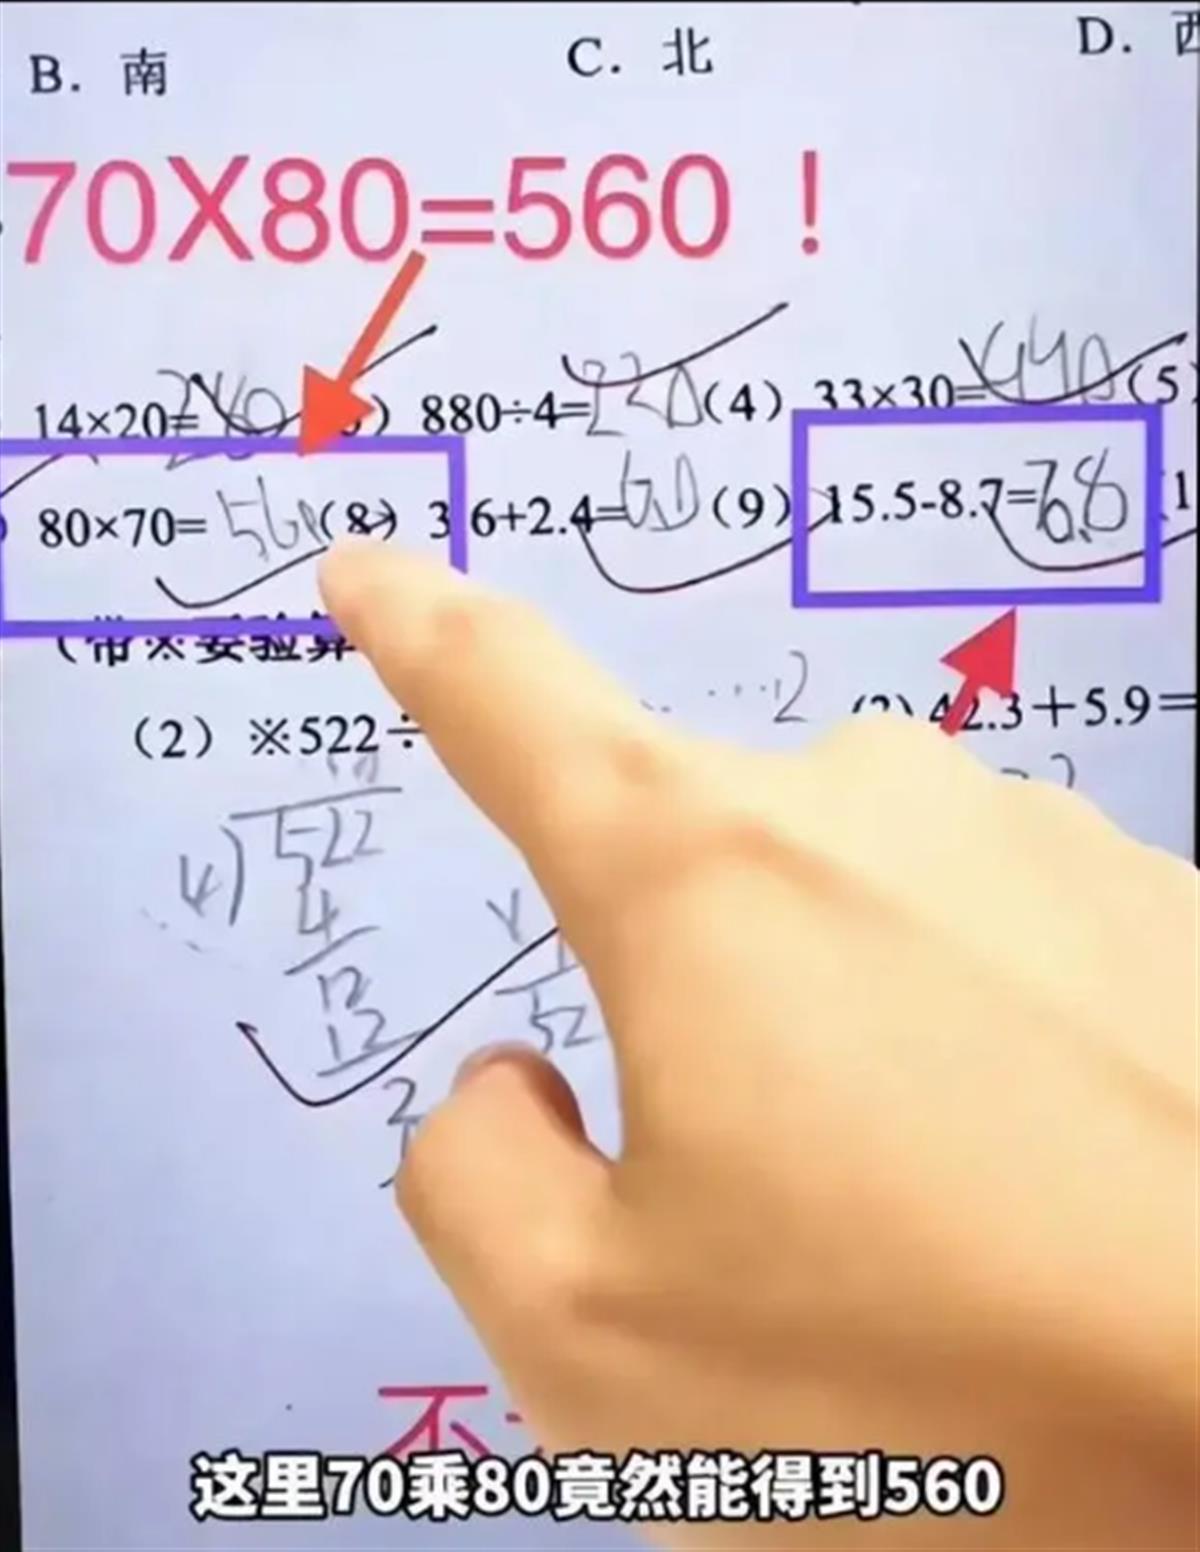 B. 南 C. 北 D.
70X80=560！
14×20=280 880÷4=220 (4) 33×30= (5)
80×70=560 (8) 3.6+2.4=6.0 (9) 15.5-8.7=6.8
（带※要验算
（2）※522÷ ……2 (3) 42.3＋5.9＝
4 522
4
12
12
2
52
不
这里70乘80竟然能得到560